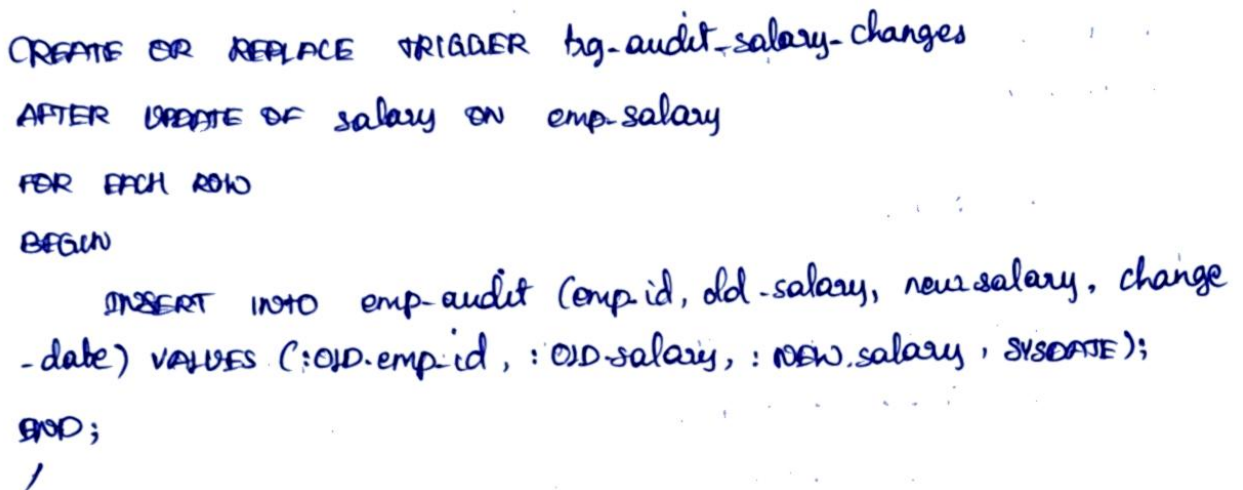 CREATE OR REPLACE TRIGGER trg-audit-salary-changes
AFTER UPDATE OF salary ON emp-salary
FOR EACH ROW
BEGIN
INSERT INTO emp-audit (emp-id, old-salary, new-salary, change
-date) VALUES (:OLD.emp-id, :OLD-salary, :NEW.salary, SYSDATE);
END;
/